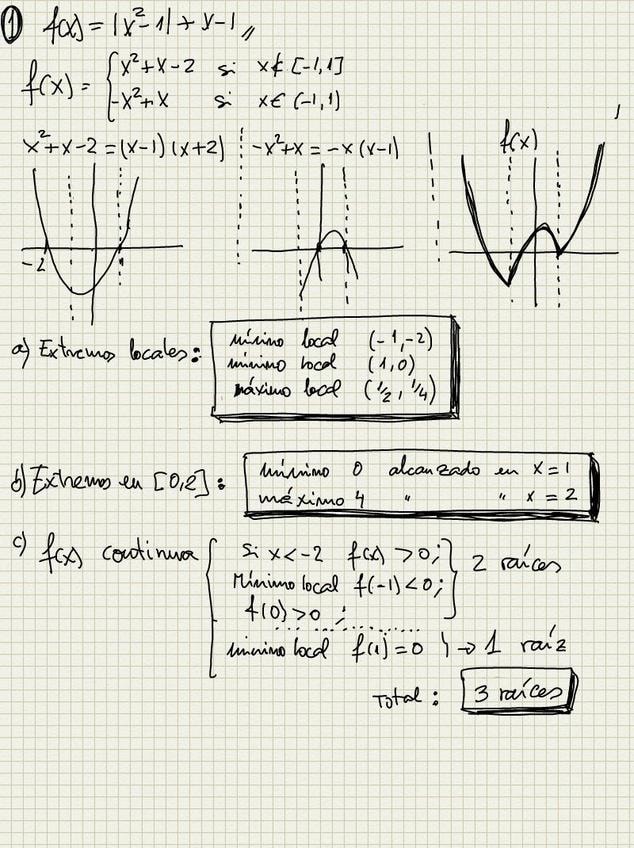 ① f(x) = |x²-1| + x-1 //
f(x) = { x²+x-2 si x∉[-1,1]
-x²+x si x∈(-1,1)
x²+x-2 = (x-1)(x+2) -x²+x = -x(x-1) f(x)
-2
a) Extremos locales: mínimo local (-1,-2)
mínimo local (1,0)
máximo local (1/2, 1/4)
b) Extremos en [0,2]: mínimo 0 alcanzado en x=1
máximo 4 " " x=2
c) f(x) continua { si x<-2 f(x)>0; } 2 raíces
Mínimo local f(-1)<0;
f(0)>0;
mínimo local f(1)=0 } → 1 raíz
Total: 3 raíces